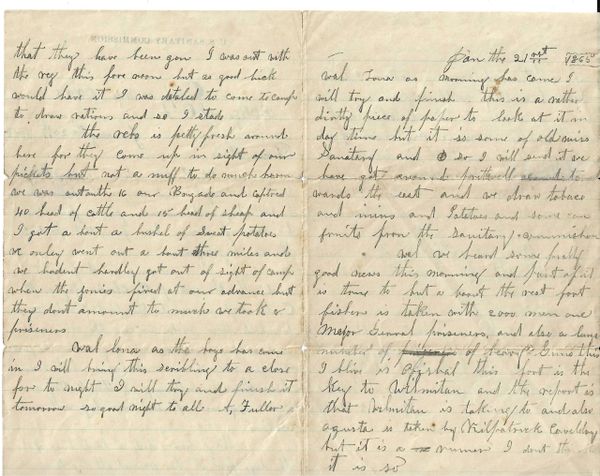 that they have been gon I was out with
the reg this fore noon but as good luck
would have it I was detaled to come to camp
to draw rations and so I staid
the rebs is petty fresh around
here for they come up in sight of our
pickets but not a nuff to do much harm
we was out on the 16 our Bregade and captred
40 head of cattle and 15 head of sheap and
I got a bout a bushel of sweat potatoes
we onley went out a bout three miles and
we hadent hardley got out of sight of camp
when the jonies fired at our advance but
they dont amount to much we took 8
priseners
wal Iona as the boys has come
in I will bring this scribling to a close
for to night I will try and finish it
tomorrow so good night to all A, Fuller
U.S. SANITARY COMMISSION
Jan the 21st 1865
wal Iona as morning has come I
will try and finish this is a rather
dirty piece of paper to look at it in
day time but it is some of old miss
Sanatary and so I will send it we
have got around prittwell to
wards the east and we draw tobaco
and and Potatoes and some can
fruits from the Sanitary commission
wal we heard some pretty
good news this morning and part of it
is true to but a bout the rest fort
fisher is taken with 2000 men one
Major General priseners, and also a large
number of of heavy Guns this
I blive is Ofishal this fort is the
key to Wilmitan and the report is
that Wilmitan is taking to and also
agusta is taken by Kilpatrick Caveldry
but it is a rumer I dont
it is so